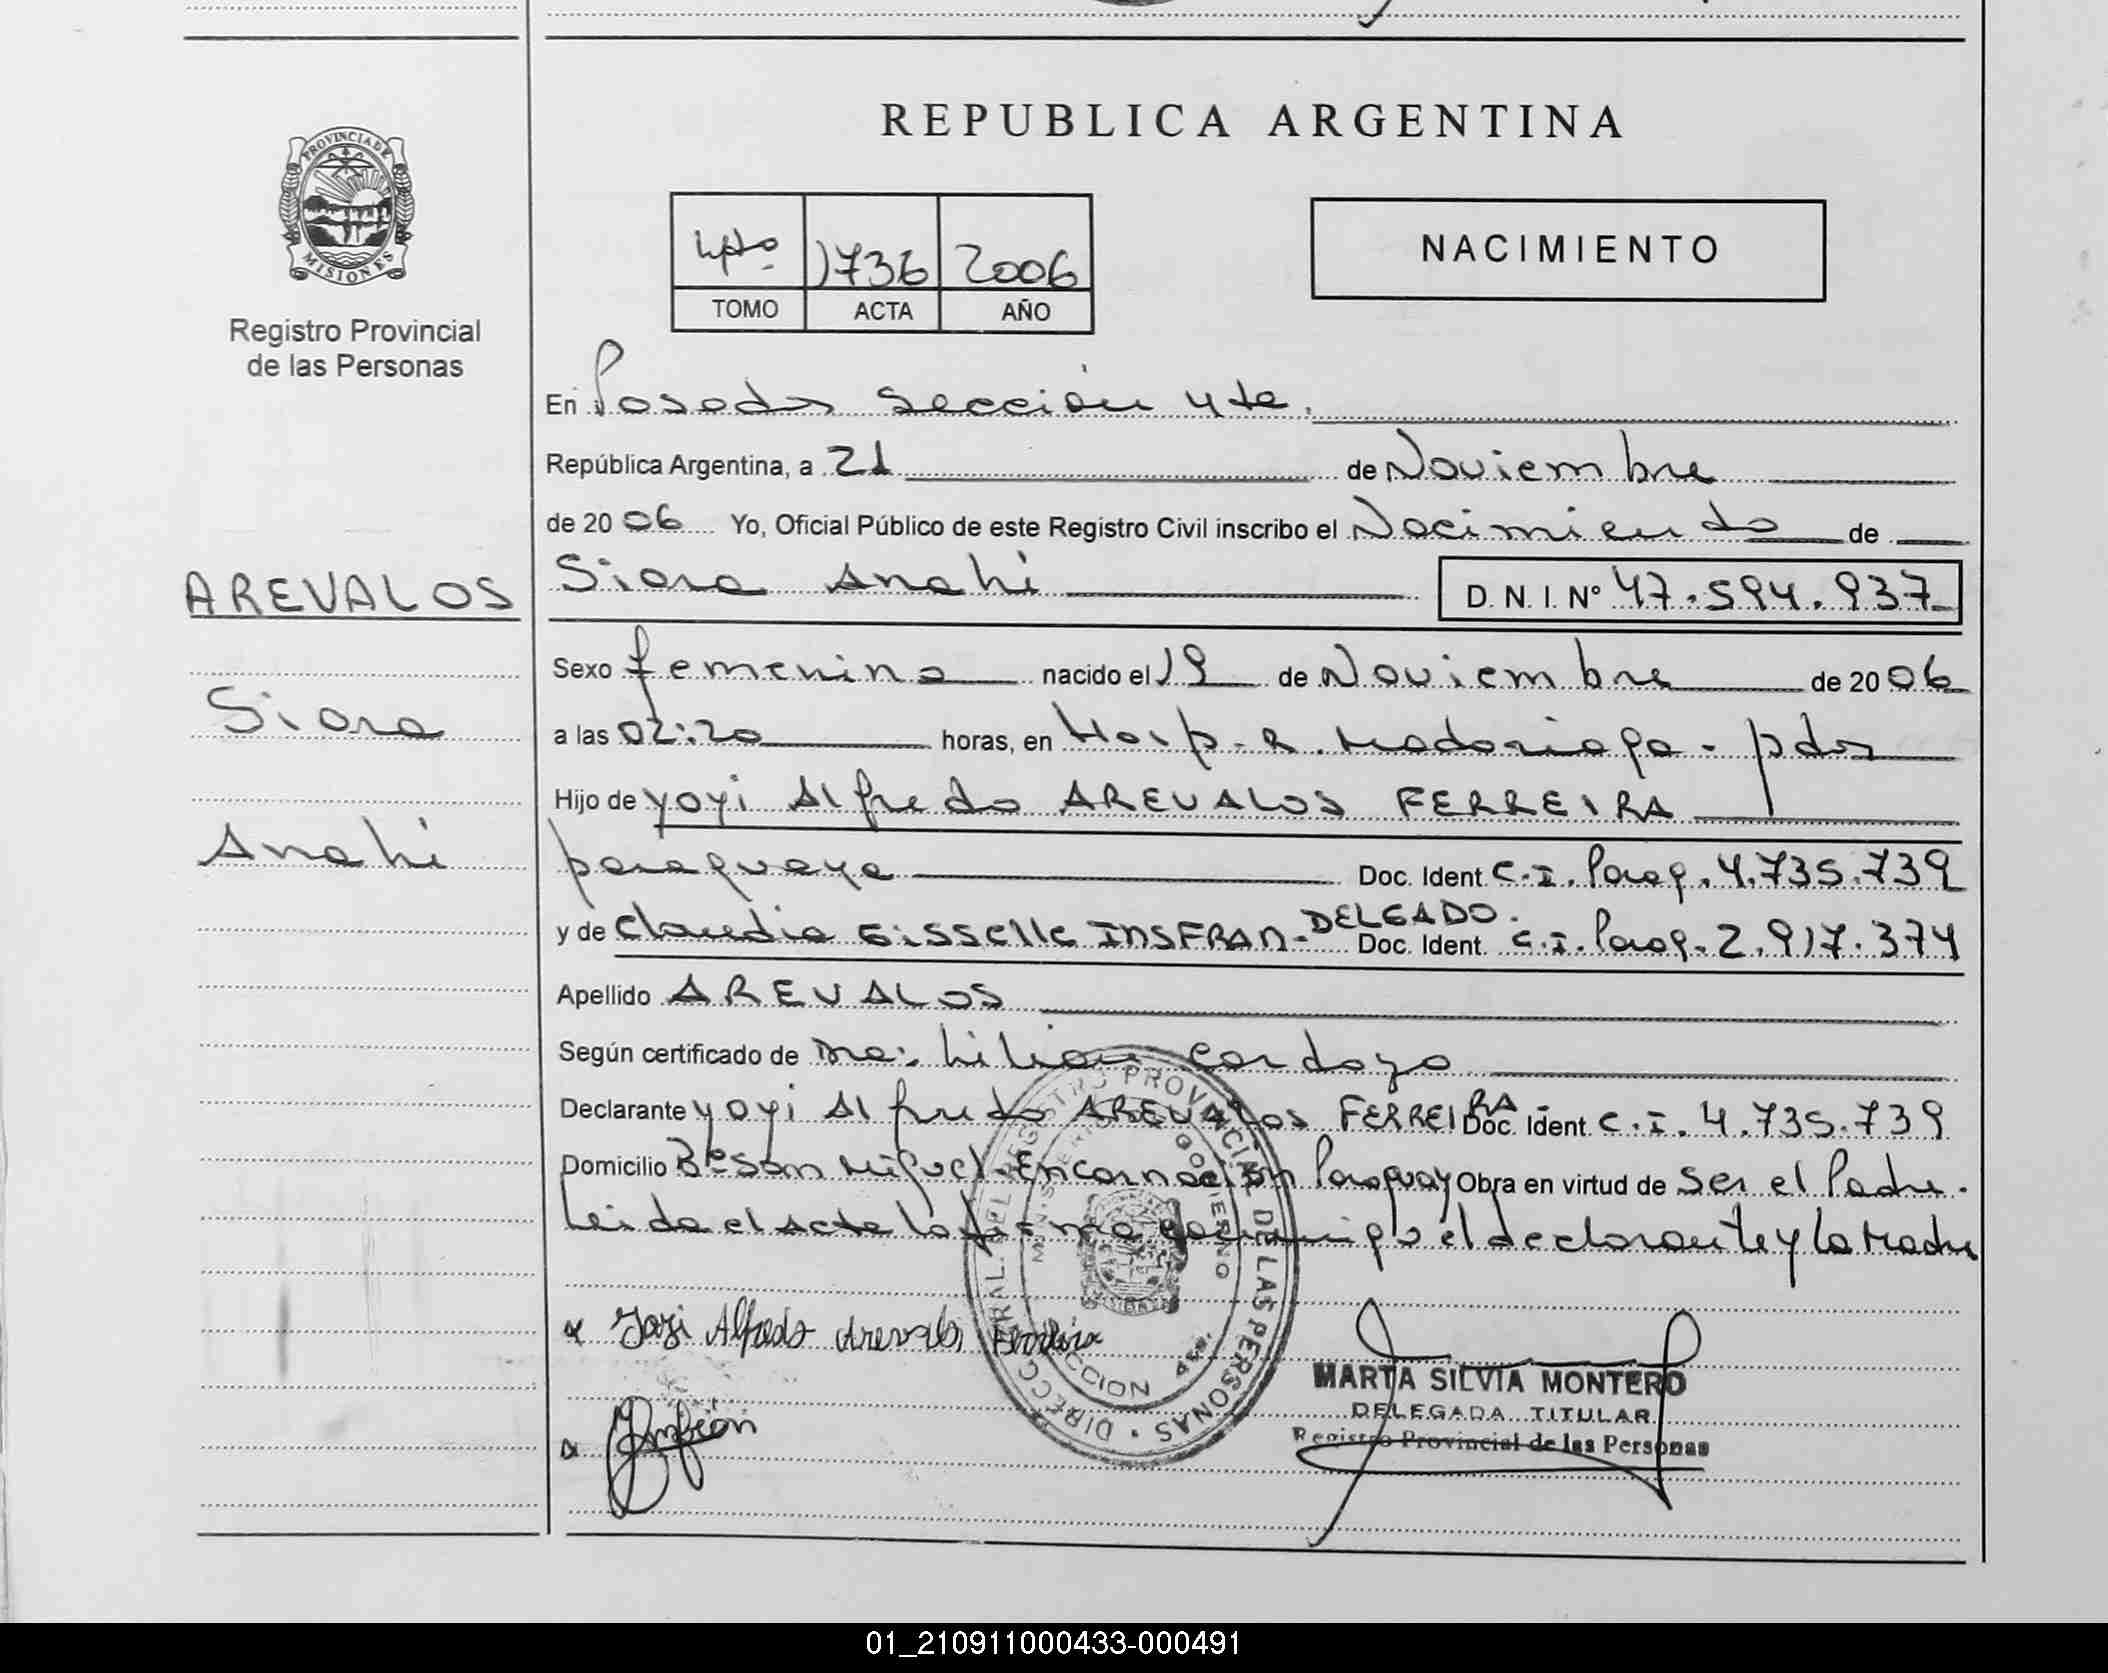 REPUBLICA ARGENTINA
PROVINCIA DE
MISIONES
Registro Provincial
de las Personas
4to 1736 2006
TOMO ACTA AÑO
NACIMIENTO
En Posadas Sección 4ta.
República Argentina, a 21 de Noviembre
de 2006 Yo, Oficial Público de este Registro Civil inscribo el Nacimiento de
AREVALOS
Siara
Anahi
Siara Anahi D. N. I. Nº 47.594.937
Sexo femenino nacido el 19 de Noviembre de 2006
a las 02:20 horas, en Hosp. R. Madariaga - pdas
Hijo de Yoyi Alfredo AREVALOS FERREIRA
paraguaya Doc. Ident. C.I. Parag. 4.735.739
y de Claudia Gisselle INSFRAN-DELGADO. Doc. Ident. C.I. Parag. 2.917.374
Apellido AREVALOS
Según certificado de Dra: Lilian Cardozo
Declarante Yoyi Alfredo AREVALOS FERREIRA Doc. Ident. C.I. 4.735.739
Domicilio Bº San Miguel-Encarnación Paraguay Obra en virtud de ser el Padre.
Leida el acta la firma conmigo el declarante y la Madre
Yoyi Alfredo Arevalos Ferreira
Insfran
DIRECC GRAL. DEL REGISTRO PROVINCIAL DE LAS PERSONAS
GOBIERNO
MARTA SILVIA MONTERO
DELEGADA TITULAR
Registro Provincial de las Personas
01_210911000433-000491